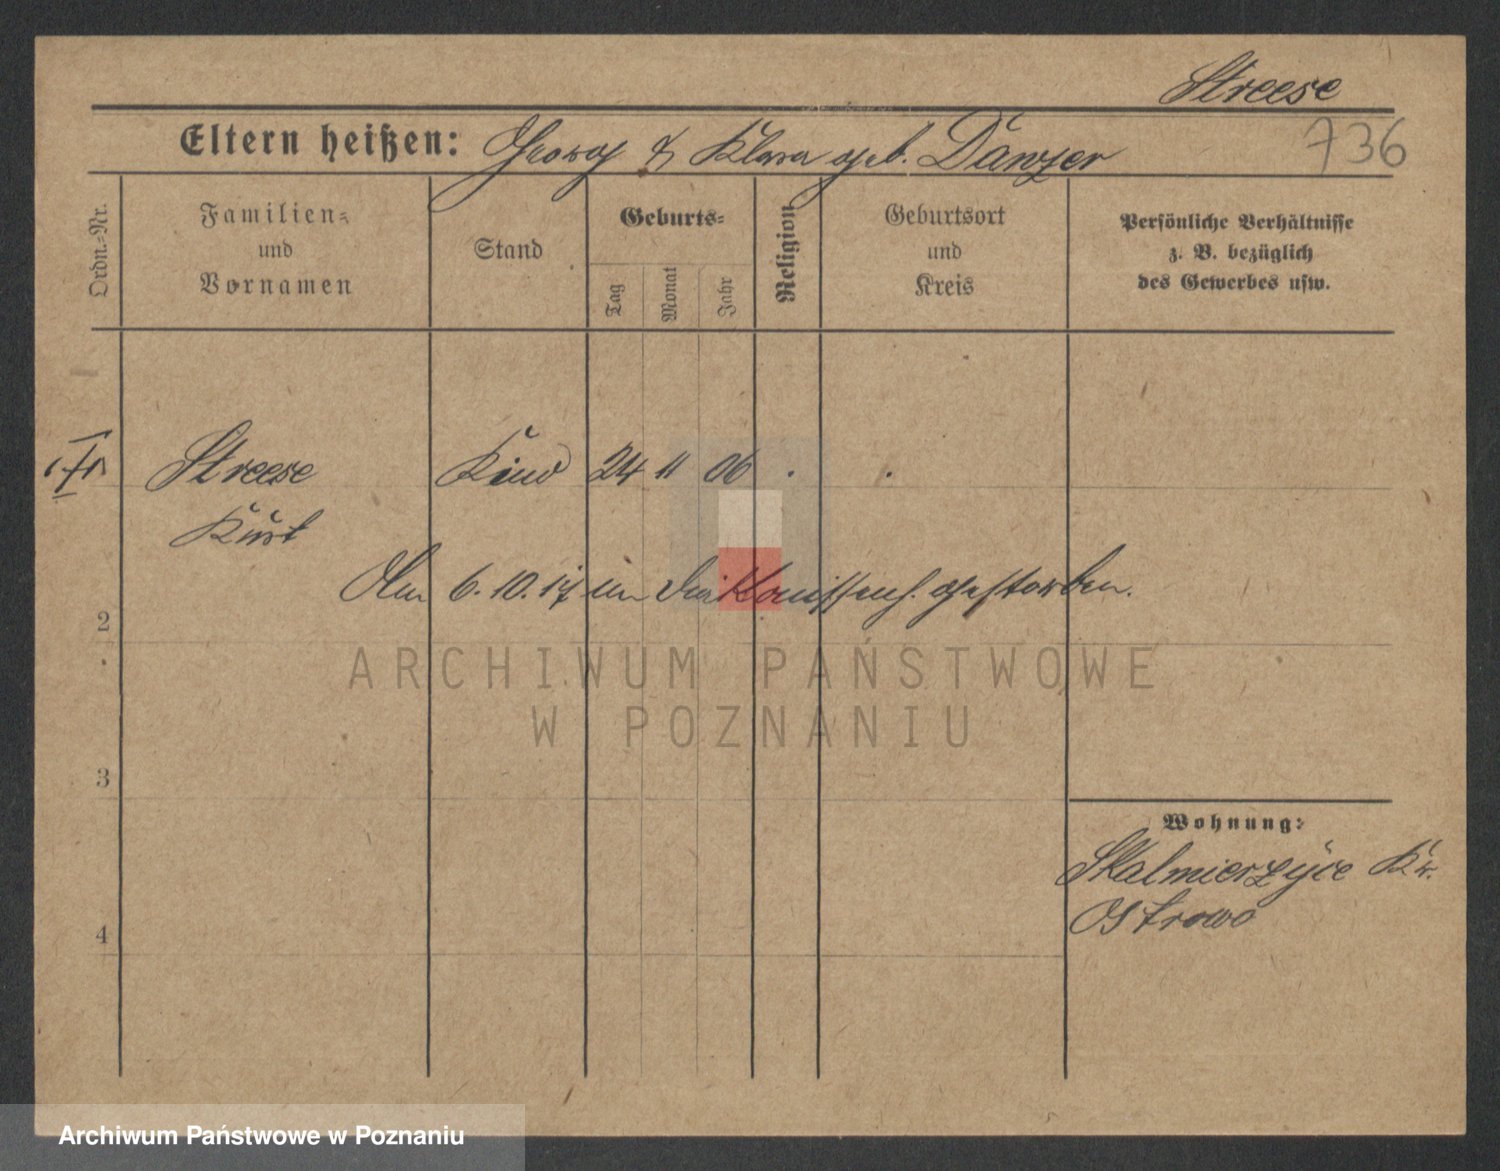 Streese
Eltern heißen: Georg & Klara geb. Dänzer
736
Ordn.-Nr.
Familien- und Vornamen
Stand
Geburts-
Tag
Monat
Jahr
Religion
Geburtsort und Kreis
Persönliche Verhältnisse
z. B. bezüglich
des Gewerbes usw.
Streese Kind 24 11 06
Kurt
Am 6.10.17 im Diakonissenh. gestorben.
2
3
4
Wohnung:
Skalmierzyce Kr.
Ostrowo
ARCHIWUM PAŃSTWOWE
W POZNANIU
Archiwum Państwowe w Poznaniu